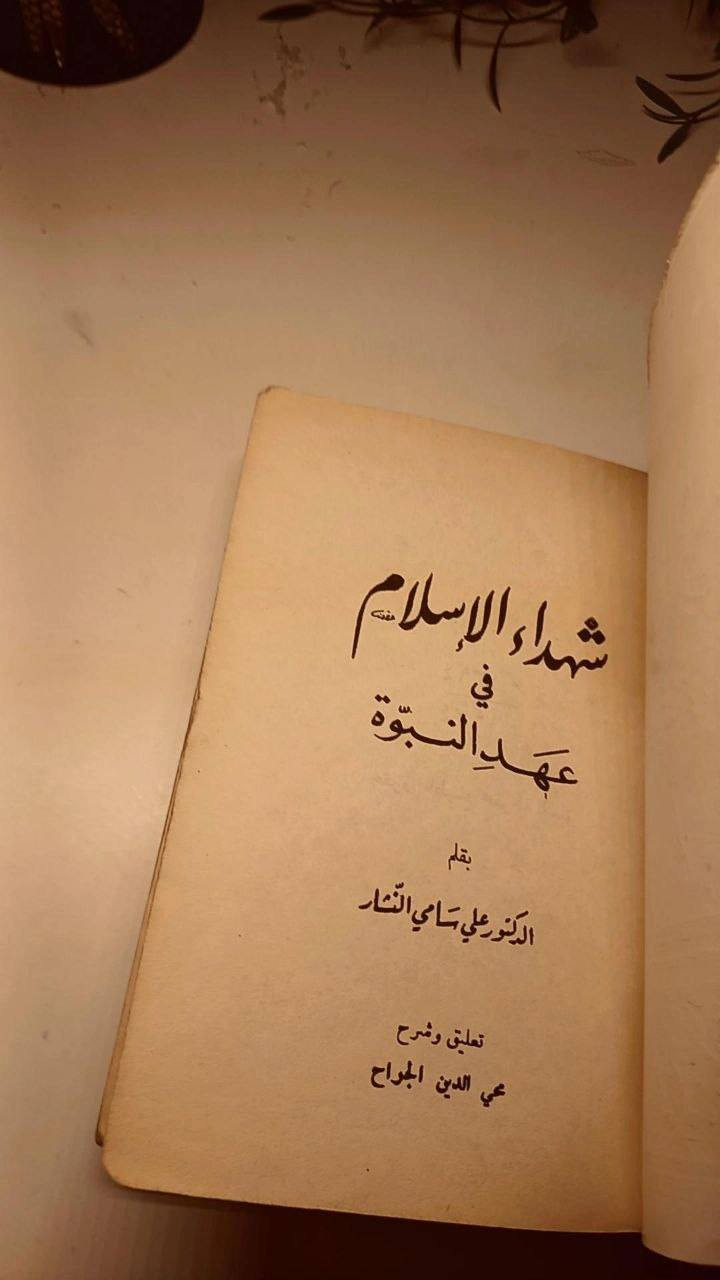 شهداء الإسلام
في
عَهَدِ النبّوة
بقلم
الدكتور علي سَامي النّشار
تعليق وشرح
محي الدين الجراح